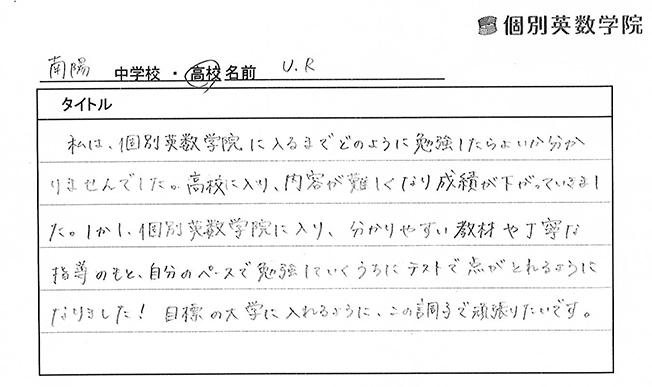 個別英数学院
南陽 中学校・高校 名前 U.R
タイトル
私は、個別英数学院に入るまでどのように勉強したらよいか分か
りませんでした。高校に入り、内容が難しくなり成績が下がっていきまし
た。しかし、個別英数学院に入り、分かりやすい教材や丁寧な
指導のもと、自分のペースで勉強していくうちにテストで点がとれるように
なりました！目標の大学に入れるように、この調子で頑張りたいです。